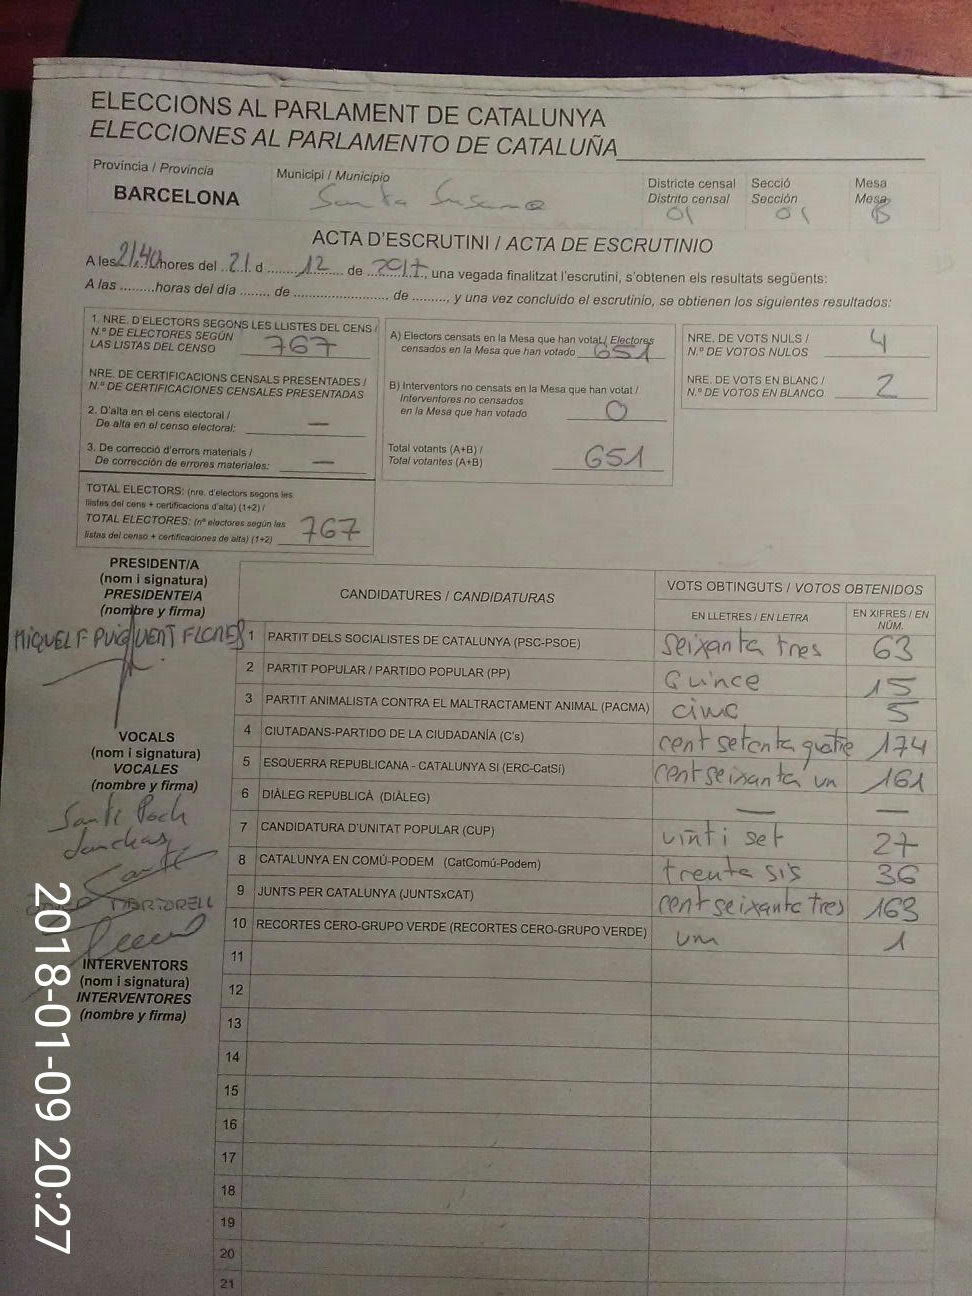 ELECCIONS AL PARLAMENT DE CATALUNYA
ELECCIONES AL PARLAMENTO DE CATALUÑA
Província / Provincia
BARCELONA
Municipi / Municipio
Santa Susanna
Districte censal
Distrito censal
01
Secció
Sección
01
Mesa
Mesa
B
ACTA D'ESCRUTINI / ACTA DE ESCRUTINIO
A les 21,40 hores del 21 d 12 de 2017, una vegada finalitzat l'escrutini, s'obtenen els resultats següents:
A las .........horas del día ........ de ........................ de ........., y una vez concluido el escrutinio, se obtienen los siguientes resultados:
1. NRE. D'ELECTORS SEGONS LES LLISTES DEL CENS /
N.º DE ELECTORES SEGÚN
LAS LISTAS DEL CENSO 767
NRE. DE CERTIFICACIONS CENSALS PRESENTADES /
N.º DE CERTIFICACIONES CENSALES PRESENTADAS
2. D'alta en el cens electoral /
De alta en el censo electoral: —
3. De correcció d'errors materials /
De corrección de errores materiales: —
TOTAL ELECTORS: (nre. d'electors segons les
llistes del cens + certificacions d'alta) (1+2) /
TOTAL ELECTORES: (nº electores según las
listas del censo + certificaciones de alta) (1+2) 767
A) Electors censats en la Mesa que han votat / Electores
censados en la Mesa que han votado 651
B) Interventors no censats en la Mesa que han votat /
Interventores no censados
en la Mesa que han votado 0
Total votants (A+B) /
Total votantes (A+B) 651
NRE. DE VOTS NULS /
N.º DE VOTOS NULOS 4
NRE. DE VOTS EN BLANC /
N.º DE VOTOS EN BLANCO 2
PRESIDENT/A
(nom i signatura)
PRESIDENTE/A
(nombre y firma)
VOCALS
(nom i signatura)
VOCALES
(nombre y firma)
Santi Poch
MARTORELL
INTERVENTORS
(nom i signatura)
INTERVENTORES
(nombre y firma)
CANDIDATURES / CANDIDATURAS
VOTS OBTINGUTS / VOTOS OBTENIDOS
EN LLETRES / EN LETRA
EN XIFRES / EN NÚM.
1 PARTIT DELS SOCIALISTES DE CATALUNYA (PSC-PSOE) seixanta tres 63
2 PARTIT POPULAR / PARTIDO POPULAR (PP) Quince 15
3 PARTIT ANIMALISTA CONTRA EL MALTRACTAMENT ANIMAL (PACMA) cinc 5
4 CIUTADANS-PARTIDO DE LA CIUDADANÍA (C's) cent setenta quatre 174
5 ESQUERRA REPUBLICANA - CATALUNYA SÍ (ERC-CatSí) cent seixanta un 161
6 DIÀLEG REPUBLICÀ (DIÀLEG) — —
7 CANDIDATURA D'UNITAT POPULAR (CUP) vint i set 27
8 CATALUNYA EN COMÚ-PODEM (CatComú-Podem) trenta sis 36
9 JUNTS PER CATALUNYA (JUNTSxCAT) cent seixanta tres 163
10 RECORTES CERO-GRUPO VERDE (RECORTES CERO-GRUPO VERDE) un 1
11
12
13
14
15
16
17
18
19
20
21
2018-01-09 20:27